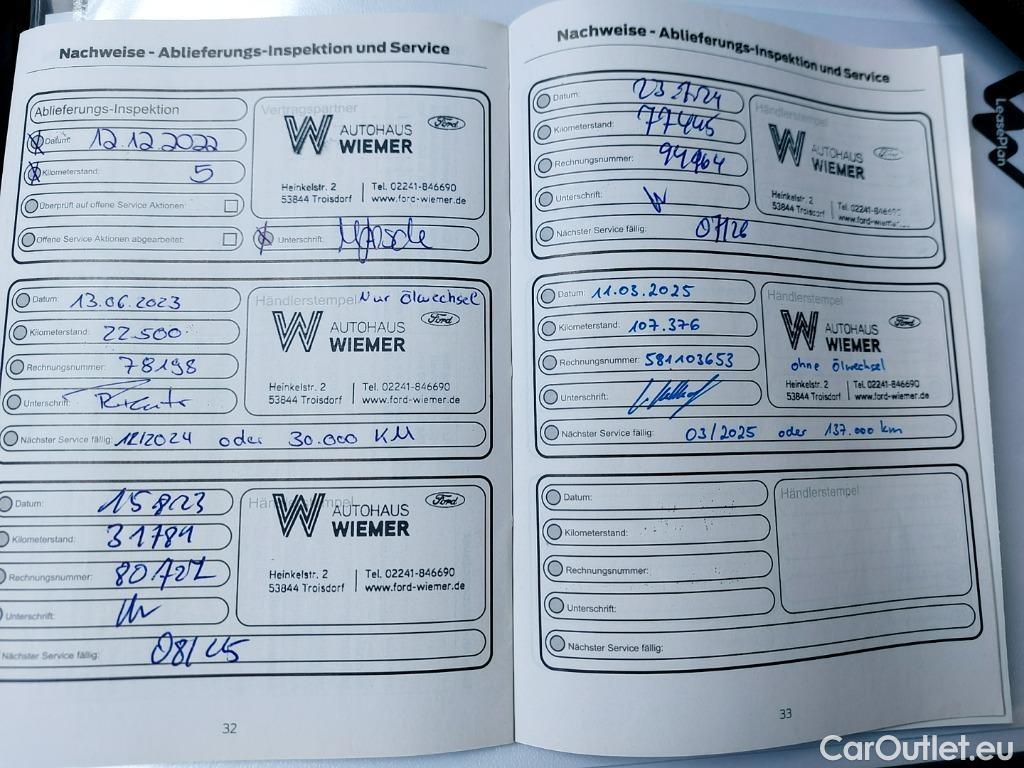 Nachweise - Ablieferungs-Inspektion und Service
Ablieferungs-Inspektion
Datum: 12.12.2022
Kilometerstand: 5
Überprüft auf offene Service Aktionen:
Offene Service Aktionen abgearbeitet:
Vertragspartner
W AUTOHAUS WIEMER Ford
Heinkelstr. 2 | Tel. 02241-846690
53844 Troisdorf | www.ford-wiemer.de
Unterschrift:
Datum: 13.06.2023
Kilometerstand: 22.500
Rechnungsnummer: 78198
Unterschrift:
Händlerstempel Nur Ölwechsel
W AUTOHAUS WIEMER Ford
Heinkelstr. 2 | Tel. 02241-846690
53844 Troisdorf | www.ford-wiemer.de
Nächster Service fällig: 12/2024 oder 30.000 KM
Datum: 15.8.23
Kilometerstand: 31789
Rechnungsnummer:
Unterschrift:
Händlerstempel
W AUTOHAUS WIEMER Ford
Heinkelstr. 2 | Tel. 02241-846690
53844 Troisdorf | www.ford-wiemer.de
Nächster Service fällig: 08/25
32
Nachweise - Ablieferungs-Inspektion und Service
Datum:
Kilometerstand: 77445
Rechnungsnummer: 94964
Unterschrift:
Händlerstempel
W AUTOHAUS WIEMER Ford
Heinkelstr. 2 | Tel. 02241-846690
53844 Troisdorf | www.ford-wiemer.de
Nächster Service fällig: 07/26
Datum: 11.03.2025
Kilometerstand: 107.376
Rechnungsnummer: 581103653
Unterschrift:
Händlerstempel
W AUTOHAUS WIEMER Ford
ohne Ölwechsel
Heinkelstr. 2 | Tel. 02241-846690
53844 Troisdorf | www.ford-wiemer.de
Nächster Service fällig: 03/2025 oder 137.000 km
Datum:
Kilometerstand:
Rechnungsnummer:
Unterschrift:
Händlerstempel
Nächster Service fällig:
33
LeasePlan
CarOutlet.eu